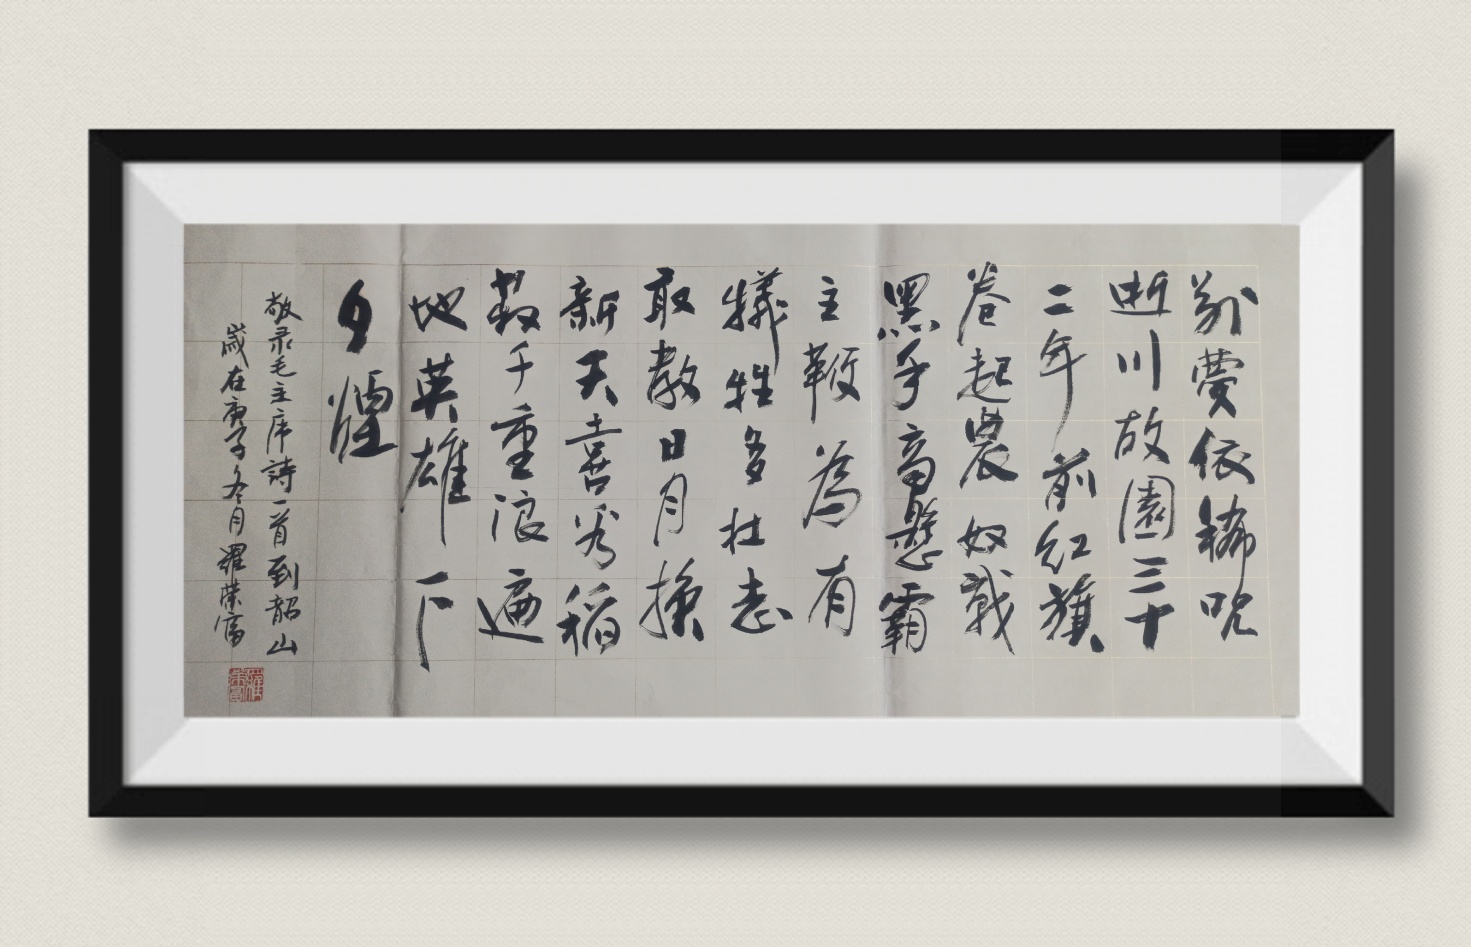 别梦依稀咒
逝川故園三十
二年前红旗
卷起農奴戟
黑手高懸霸
主鞭為有
犧牲多壮志
敢教日月换
新天喜看稻
菽千重浪遍
地英雄下
夕煙
敬录毛主席詩一首到韶山
歲在庚子冬月羅荣富